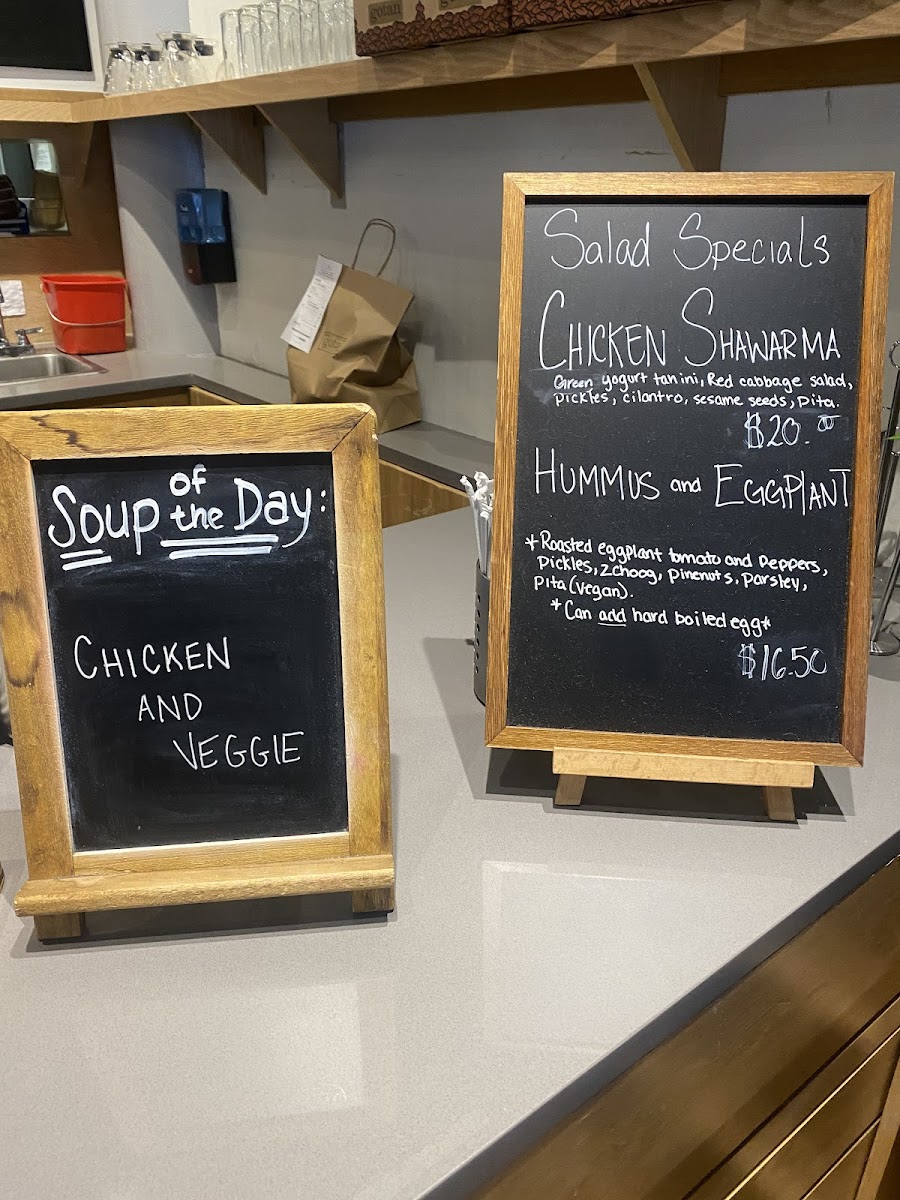 gotan
Soup of the Day:
CHICKEN
AND
VEGGIE
Salad Specials
CHICKEN SHAWARMA
Green yogurt tahini, Red cabbage salad,
pickles, cilantro, sesame seeds, pita.
$20.00
HUMMUS and EGGPlANT
*Roasted eggplant tomato and peppers,
pickles, zchoog, pinenuts, parsley,
pita (vegan).
*Can add hard boiled egg*
$16.50